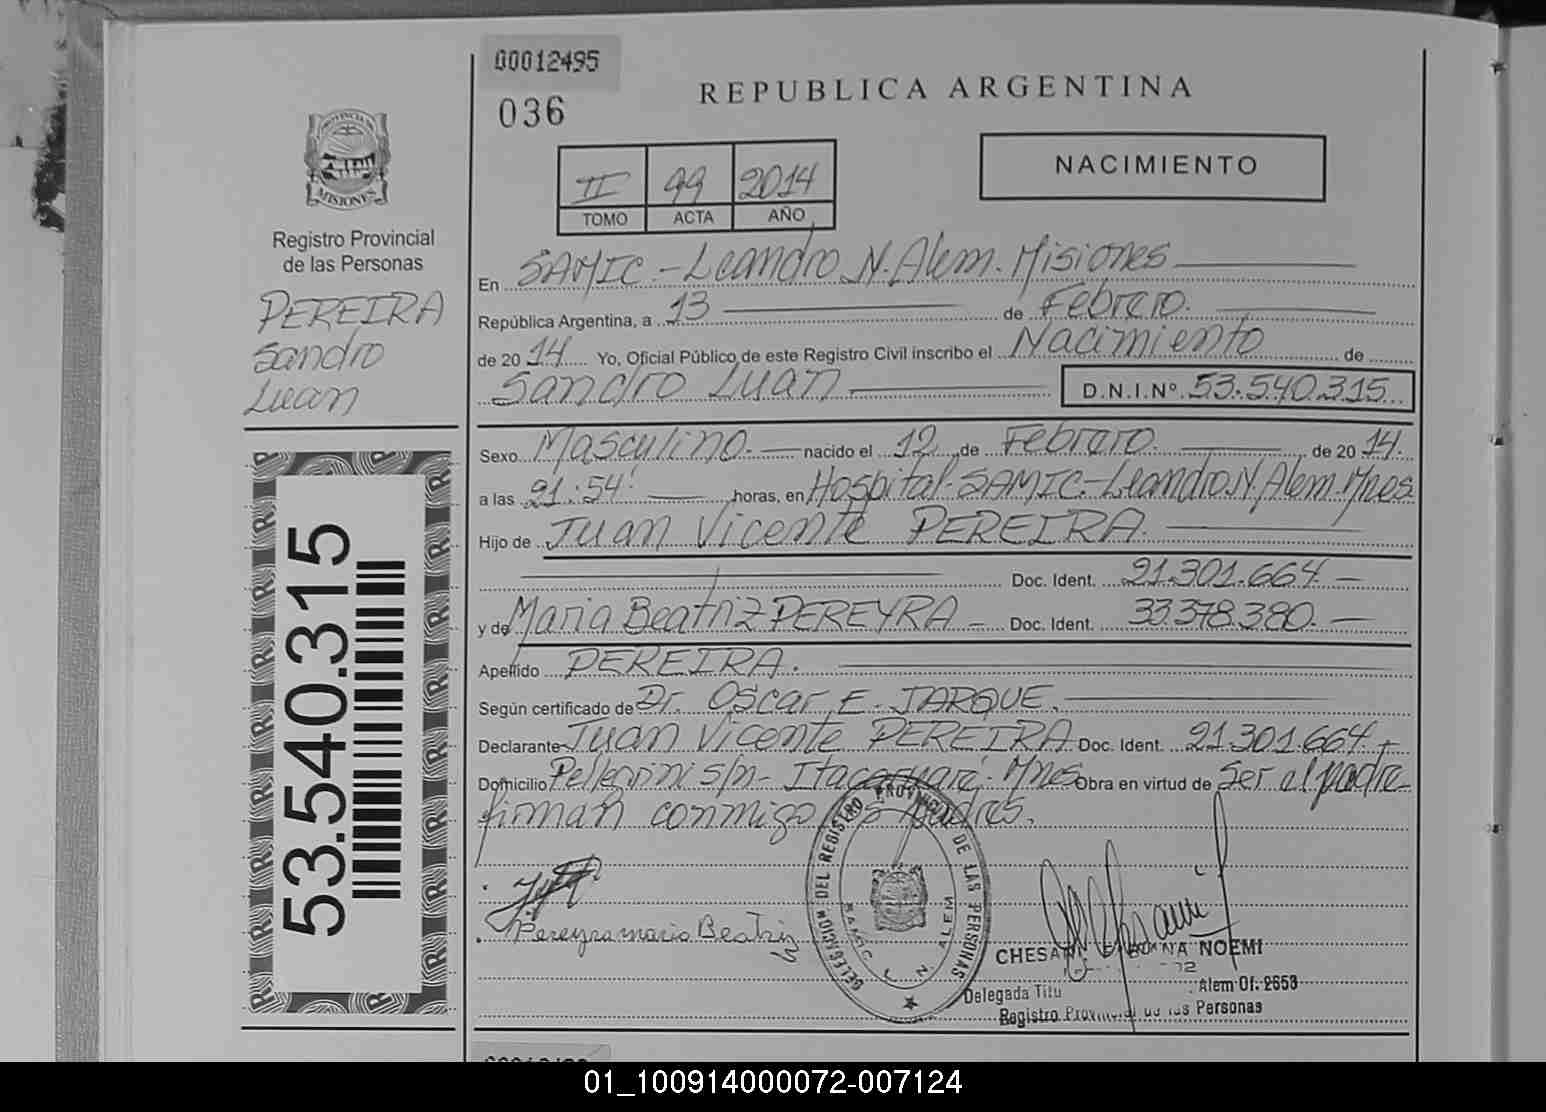 00012495
036
REPUBLICA ARGENTINA
PROVINCIA DE
MISIONES
Registro Provincial
de las Personas
PEREIRA
Sandro
Luan
II 99 2014
TOMO ACTA AÑO
NACIMIENTO
En SAMIC - Leandro N. Alem. Misiones
República Argentina, a 13 de Febrero.
de 2014 Yo, Oficial Público de este Registro Civil inscribo el Nacimiento de
Sandro Luan D.N.I.Nº 53.540.315
Sexo Masculino. nacido el 12 de Febrero. de 2014.
a las 21:54' horas, en Hospital SAMIC - Leandro N. Alem. Mnes
Hijo de Juan Vicente PEREIRA.
Doc. Ident. 21.301.664 -
y de Maria Beatriz PEREYRA - Doc. Ident. 33.378.380. -
Apellido PEREIRA.
Según certificado de Dr. Oscar E. JARQUE.
Declarante Juan Vicente PEREIRA Doc. Ident. 21.301.664 -
Domicilio Pellegrini s/n - Itacaruaré - Mnes Obra en virtud de Ser el padre
firman conmigo los padres.
53.540.315
Pereyra maria Beatriz
DELEGACION DEL REGISTRO PROVINCIAL DE LAS PERSONAS
SAMIC L N ALEM
CHESANI NOEMI
Delegada Titu Alem Of. 2653
Registro Provincial de las Personas
01_100914000072-007124